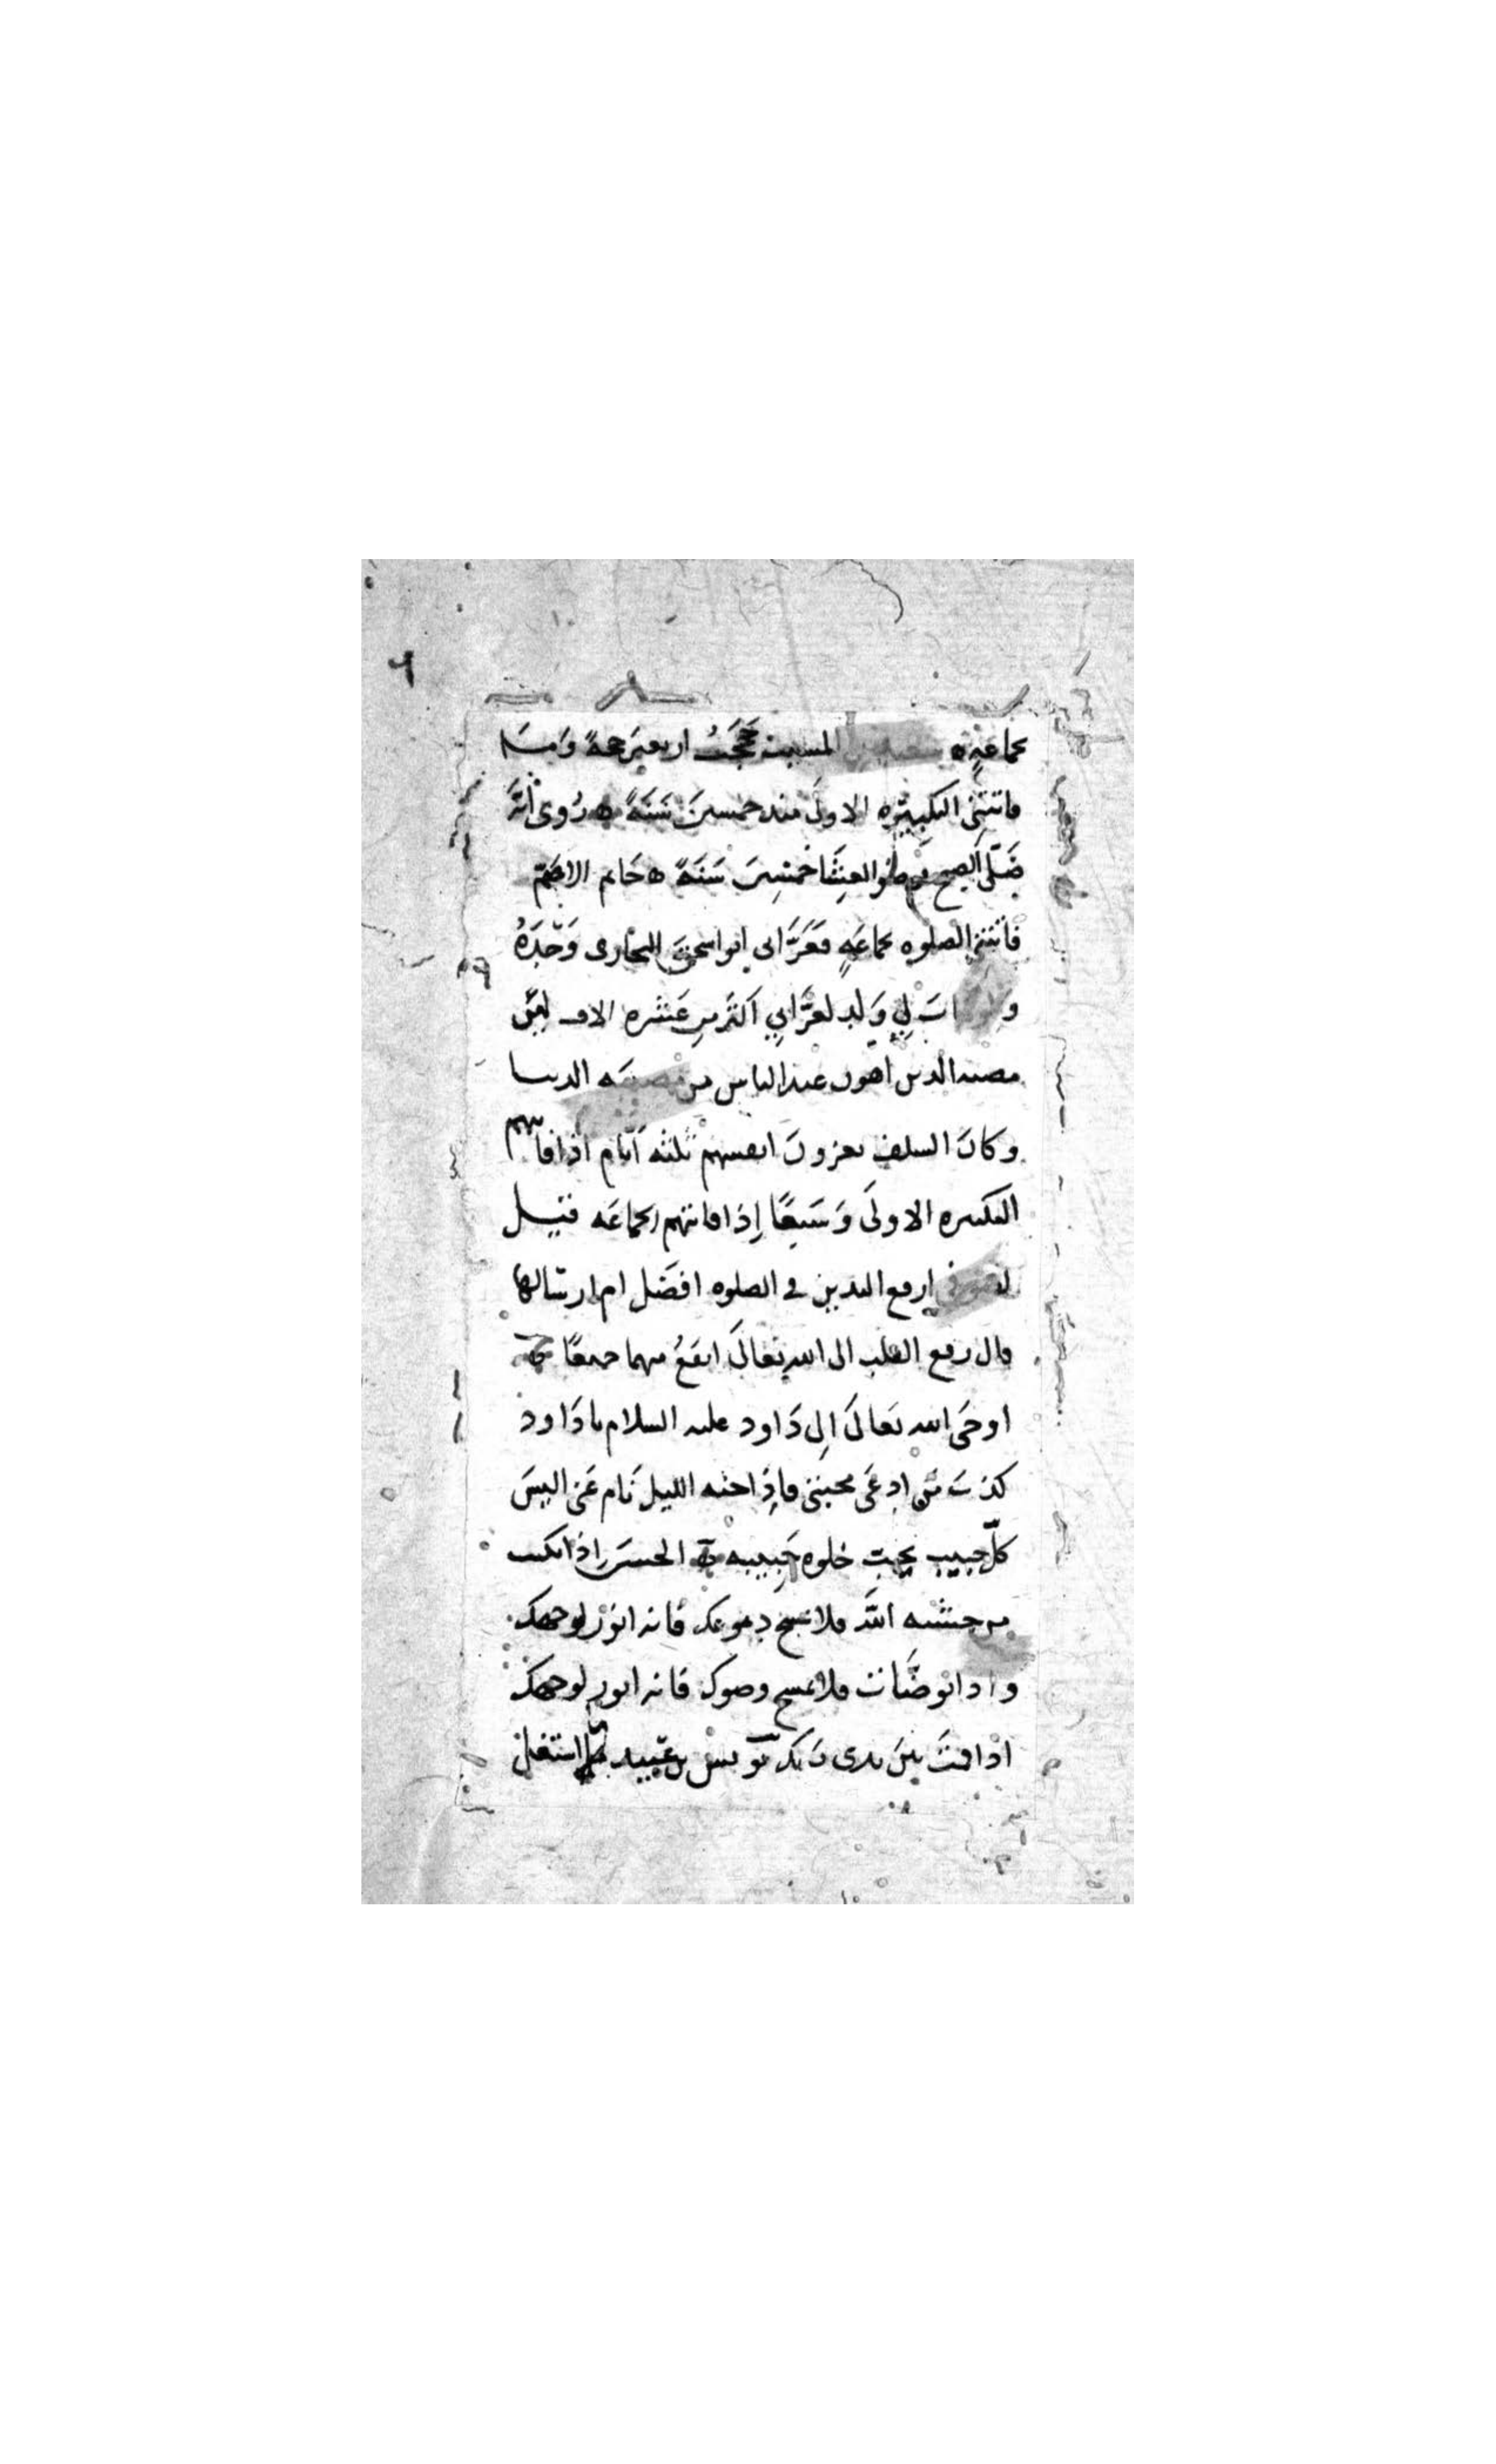 ٦
بجماعة ه سعيد بن المسيب حَجَجتُ اربعين حجةً وَما
فاتتني التكبيرة الاولى منذ خمسين سَنَةً ه رُوى انه
صَلّى الصبح بوضو العِشَا خمسين سَنَةً ه حَاتم الاصَمّ
فاتتني الصلوه بجماعَةٍ فعَزَّاني ابو اسحق البخارى وَحْدَهُ
ولو مات لِي وَلد لعزَّاني اكثر من عَشره الاف لِانّ
مصيبه الدين اهون عند الناس من مصيبَه الدنيا
وكانَ السلف يعزون انفسهم ثلثه ايّام اذا فاتتهم
التكبيره الاولىَ وَسَبعًا إذا فاتتهم الجماعَه قيل
ارفع اليدين في الصلوه افضَل ام ارسَالها
قال رفع القلب الى الله تعالىَ انفَعُ منهما جميعًا
اوحَى الله تعالىَ اِلى دَاود عليه السلام يا دَاود
كذبَ مَن ادعَى محبتي فاِذا جنه الليل نَام عَني اليسَ
كلّ حبيب يحب خلوه حَبيبه ه الحسَن اِذا بكيت
من خشيه اللّه فلا تمسح دموعك فانه انور لوجهك
واذا توضَّات فلا تمسح وضوك فانه انور لوجهك
اذا قمتَ بينَ يدى رَبك يونس بن عُبيد استغل